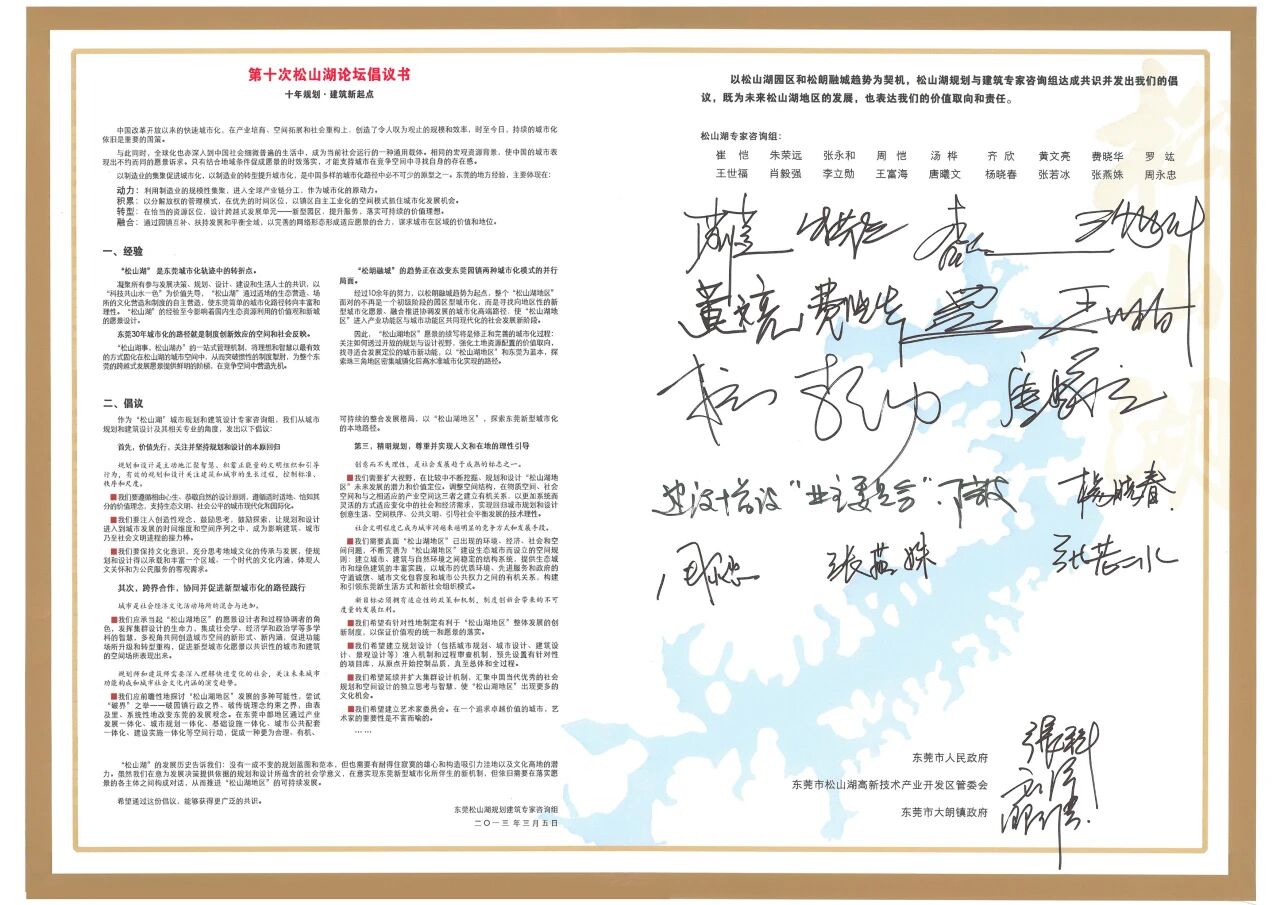 第十次松山湖论坛倡议书
十年规划·建筑新起点
中国改革开放以来的快速城市化，在产业培育、空间拓展和社会重构上，创造了令人叹为观止的规模和效率，时至今日，持续的城市化
依旧是重要的国策。
与此同时，全球化也亦深入到中国社会细微普遍的生活中，成为当前社会运行的一种通用载体。相同的宏观资源背景，使中国的城市表
现出不约而同的愿景诉求。只有结合地域条件促成愿景的时效落实，才能支持城市在竞争空间中寻找自身的存在感。
以制造业的集聚促进城市化，以制造业的转型提升城市化，是中国多样的城市化路径中必不可少的原型之一。东莞的地方经验，主要体现在：
动力：利用制造业的规模性集聚，进入全球产业链分工，作为城市化的原动力。
积累：以分解放权的管理模式，在优先的时间区位，以镇区自主工业化的空间模式抓住城市化发展机会。
转型：在恰当的资源区位，设计跨越式发展单元——新型园区，提升服务，落实可持续的价值理想。
融合：通过园镇互补、扶持发展和平衡全域，以完善的网络形态形成适应愿景的合力，谋求城市在区域的价值和地位。
一、经验
“松山湖”是东莞城市化轨迹中的转折点。
凝聚所有参与发展决策、规划、设计、建设和生活人士的共识，以
“科技共山水一色”为价值先导，“松山湖”通过适地的生态营造、场
所的文化营造和制度的自主营造，使东莞简单的城市化路径转向丰富和
理性。“松山湖”的经验至今影响着国内生态资源利用的价值观和新城
的愿景设计。
东莞30年城市化的路径就是制度创新效应的空间和社会反映。
“松山湖事，松山湖办”的一站式管理机制，将理想和智慧以最有效
的方式固化在松山湖的城市空间中，从而突破惯性的制度掣肘，为整个东
莞的跨越式发展愿景提供鲜明的阶梯，在竞争空间中营造先机。
“松朗融城”的趋势正在改变东莞园镇两种城市化模式的并行
局面。
经过10余年的努力，以松朗融城趋势为起点，整个“松山湖地区”
面对的不再是一个初级阶段的园区型城市化，而是寻找向地区性的新
型城市化愿景、融合推进协调发展的城市化高端路径，使“松山湖地
区”进入产业功能区与城市功能区共同现代化的社会发展新阶段。
因此，“松山湖地区”愿景的续写将是修正和完善的城市化过程：
关注如何透过开放的规划与设计视野，强化土地资源配置的价值取向，
找寻适合发展定位的城市新功能，以“松山湖地区”和东莞为蓝本，探
索珠三角地区密集城镇化后高水准城市化实现的路径。
二、倡议
作为“松山湖”城市规划和建筑设计专家咨询组，我们从城市
规划和建筑设计及其相关专业的角度，发出以下倡议：
首先，价值先行，关注并坚持规划和设计的本原回归
规划和设计是主动地汇聚智慧、积蓄正能量的文明组织和引导
行为，有效的规划和设计关注建筑和城市的生长过程，控制标准、
秩序和尺度。
■我们要遵循相由心生、恭敬自然的设计原则，遵循适时适地、恰如其
分的价值理念，支持生态文明、社会公平的城市现代化和国际化。
■我们要注入创造性观念，鼓励思考，鼓励探索，让规划和设计
进入到城市发展的时间维度和空间序列之中，成为影响建筑、城市
乃至社会文明进程的接力棒。
■我们要保持文化意识，充分思考地域文化的传承与发展，使规
划和设计得以承载和丰富一个区域、一个时代的文化内涵，体现人
文关怀和为公民服务的客观需求。
其次，跨界合作，协同并促进新型城市化的路径践行
城市是社会经济文化活动场所的混合与迭加。
■我们应承当起“松山湖地区”的愿景设计者和过程协调者的角
色，发挥集群设计的生命力，集成社会学、经济学和政治学等多学
科的智慧，多视角共同创造城市空间的新形式、新内涵，促进功能
场所升级和转型重构，促进新型城市化愿景以共识性的城市和建筑
的空间场所表现出来。
规划师和建筑师需要深入理解快速变化的社会，关注未来城市
功能构成和城市社会文化内涵的演变趋势。
■我们应前瞻性地探讨“松山湖地区”发展的多种可能性，尝试
“破界”之举——破园镇行政之界、破传统理念约束之界，由表
及里、系统性地改变东莞的发展观念。在东莞中部地区通过产业
发展一体化、城市规划一体化、基础设施一体化、城市公共配套
一体化、建设实施一体化等空间行动，促成一种更为合理、有机、
可持续的整合发展格局，以“松山湖地区”，探索东莞新型城市化
的本地路径。
第三，精明规划，尊重并实现人文和在地的理性引导
创意而不失理性，是社会发展趋于成熟的标志之一。
■我们需要扩大视野，在比较中不断挖掘，规划和设计“松山湖地
区”未来发展的潜力和价值定位。调整空间结构，在物质空间、社会
空间和与之相适应的产业空间达三者之建立有机关系，以更加系统而
灵活的方式适应变化中的社会和经济需求，实现回归城市规划和设计
创意生活、空间秩序、公共文明、引导社会平衡发展的技术理性。
社会文明程度已成为城市间越来越明显的竞争方式和发展手段。
■我们需要真面“松山湖地区”已出现的环境、经济、社会和空
间问题，不断完善为“松山湖地区”建设生态城市而设立的空间规
则：建立城市、建筑与自然环境之间稳定的结构系统，提供生态城
市和绿色建筑的丰富实践，以城市的优质环境、先进服务和政府的
守道诚信、城市文化包容度和城市公共权力之间的有机关系，构建
和引领东莞新生活方式和新社会组织模式。
新目标必须拥有适应性的政策和机制，制度创新会带来的不可
度量的发展红利。
■我们希望有针对性地制定有利于“松山湖地区”整体发展的创
新制度，以保证价值观的统一和愿景的落实。
■我们希望建立规划设计（包括城市规划、城市设计、建筑设
计、景观设计等）准入机制和过程审查机制，预先设置有针对性
的项目库，从原点开始控制品质，真至总体和全过程。
■我们希望延续并扩大集群设计机制，汇聚中国当代优秀的社会
规划和空间设计的独立思考与智慧，使“松山湖地区”出现更多的
文化机会。
■我们希望建立艺术家委员会。在一个追求卓越价值的城市，艺
术家的重要性是不言而喻的。
……
“松山湖”的发展历史告诉我们：没有一成不变的规划蓝图和范本，但也需要有耐得住寂寞的雄心和构造吸引力洼地以及文化高地的潜
力。虽然我们在意为发展决策提供依据的规划和设计所蕴含的社会学意义，在意实现东莞新型城市化所伴生的新机制，但依旧需要在落实愿
景的各主体之间构成对话，从而推进“松山湖地区”的可持续发展。
希望通过这份倡议，能够获得更广泛的共识。
东莞松山湖规划建筑专家咨询组
二〇一三年三月五日
以松山湖园区和松朗融城趋势为契机，松山湖规划与建筑专家咨询组达成共识并发出我们的倡
议，既为未来松山湖地区的发展，也表达我们的价值取向和责任。
松山湖专家咨询组：
崔 恺 朱荣远 张永和 周 恺 汤 桦 齐 欣 黄文亮 费晓华 罗 竑
王世福 肖毅强 李立勋 王富海 唐曦文 杨晓春 张若冰 张燕姝 周永忠
黄文亮 费晓华
建议增设“业主委员会”. 杨晓春.
张燕姝 张若冰
东莞市人民政府
东莞市松山湖高新技术产业开发区管委会
东莞市大朗镇政府